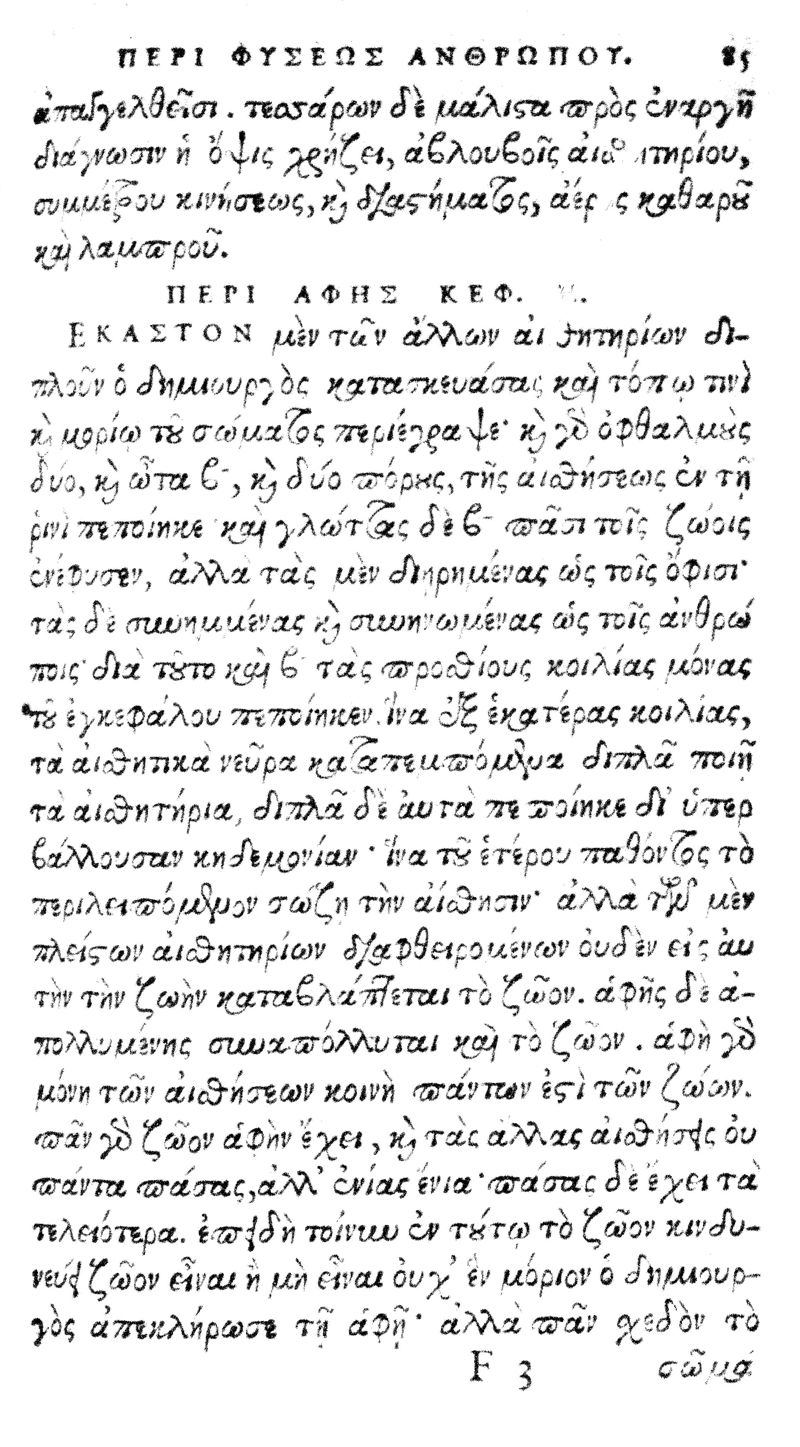 ΠΕΡΙ ΦΥΣΕΩΣ ΑΝΘΡΩΠΟΥ. 85
ἀπαγγελθεῖσι. τεσσάρων δὲ μάλιστα πρὸς ἐναργῆ
διάγνωσιν ἡ ὄψις χρήζει, ἀβλαβοῦς
συμμέτρου κινήσεως, καὶ διαστήματος, ἀέρος καθαροῦ
καὶ λαμπροῦ.
ΠΕΡΙ ΑΦΗΣ ΚΕΦ.
ΕΚΑΣΤΟΝ μὲν τῶν ἄλλων αἰσθητηρίων δι-
πλοῦν ὁ δημιουργὸς κατασκευάσας καὶ τόπῳ τινὶ
καὶ μορίῳ τοῦ σώματος περιέγραψε· καὶ γὰρ ὀφθαλμοὺς
δύο, καὶ ὦτα β, καὶ δύο πόρους, τῆς αἰσθήσεως ἐν τῇ
ῥινὶ πεποίηκε καὶ γλώττας δὲ β πᾶσι τοῖς ζώοις
ἐνέφυσεν, ἀλλὰ τὰς μὲν διῃρημένας ὡς τοῖς ὄφισι·
τὰς δὲ συνημμένας καὶ συνηνωμένας ὡς τοῖς ἀνθρώ
ποις· διὰ τοῦτο καὶ β τὰς προσθίους κοιλίας μόνας
τοῦ ἐγκεφάλου πεποίηκεν. ἵνα ἐξ ἑκατέρας κοιλίας,
τὰ αἰσθητικὰ νεῦρα καταπεμπόμενα διπλᾶ ποιῇ
τὰ αἰσθητήρια, διπλᾶ δὲ ἀυτὰ πεποίηκε δι' ὑπερ
βάλλουσαν κηδεμονίαν· ἵνα τοῦ ἑτέρου παθόντος τὸ
περιλειπόμενον σώζῃ τὴν αἴσθησιν· ἀλλὰ τῶν μὲν
πλείστων αἰσθητηρίων διαφθειρομένων ουδὲν εἰς ἀυ
τὴν τὴν ζωὴν καταβλάπτεται τὸ ζῶον. ἁφῆς δὲ ἀ-
πολλυμένης συναπόλλυται καὶ τὸ ζῶον. ἁφὴ γὰρ
μόνη τῶν αἰσθήσεων κοινὴ πάντων ἐστὶ τῶν ζώων.
πᾶν γὰρ ζῶον ἁφὴν ἔχει, καὶ τὰς ἄλλας αἰσθήσεις ου
πάντα πάσας, ἀλλ' ἐνίας ἔνια· πάσας δὲ ἔχει τὰ
τελειότερα. ἐπειδὴ τοίνυν ἐν τούτῳ τὸ ζῶον κινδυ-
νεύει ζῶον εἶναι ἢ μὴ εἶναι ουχ' ἓν μόριον ὁ δημιουρ-
γὸς ἀπεκλήρωσε τῇ ἁφῇ· ἀλλὰ πᾶν σχεδὸν τὸ
F 3 σῶμα